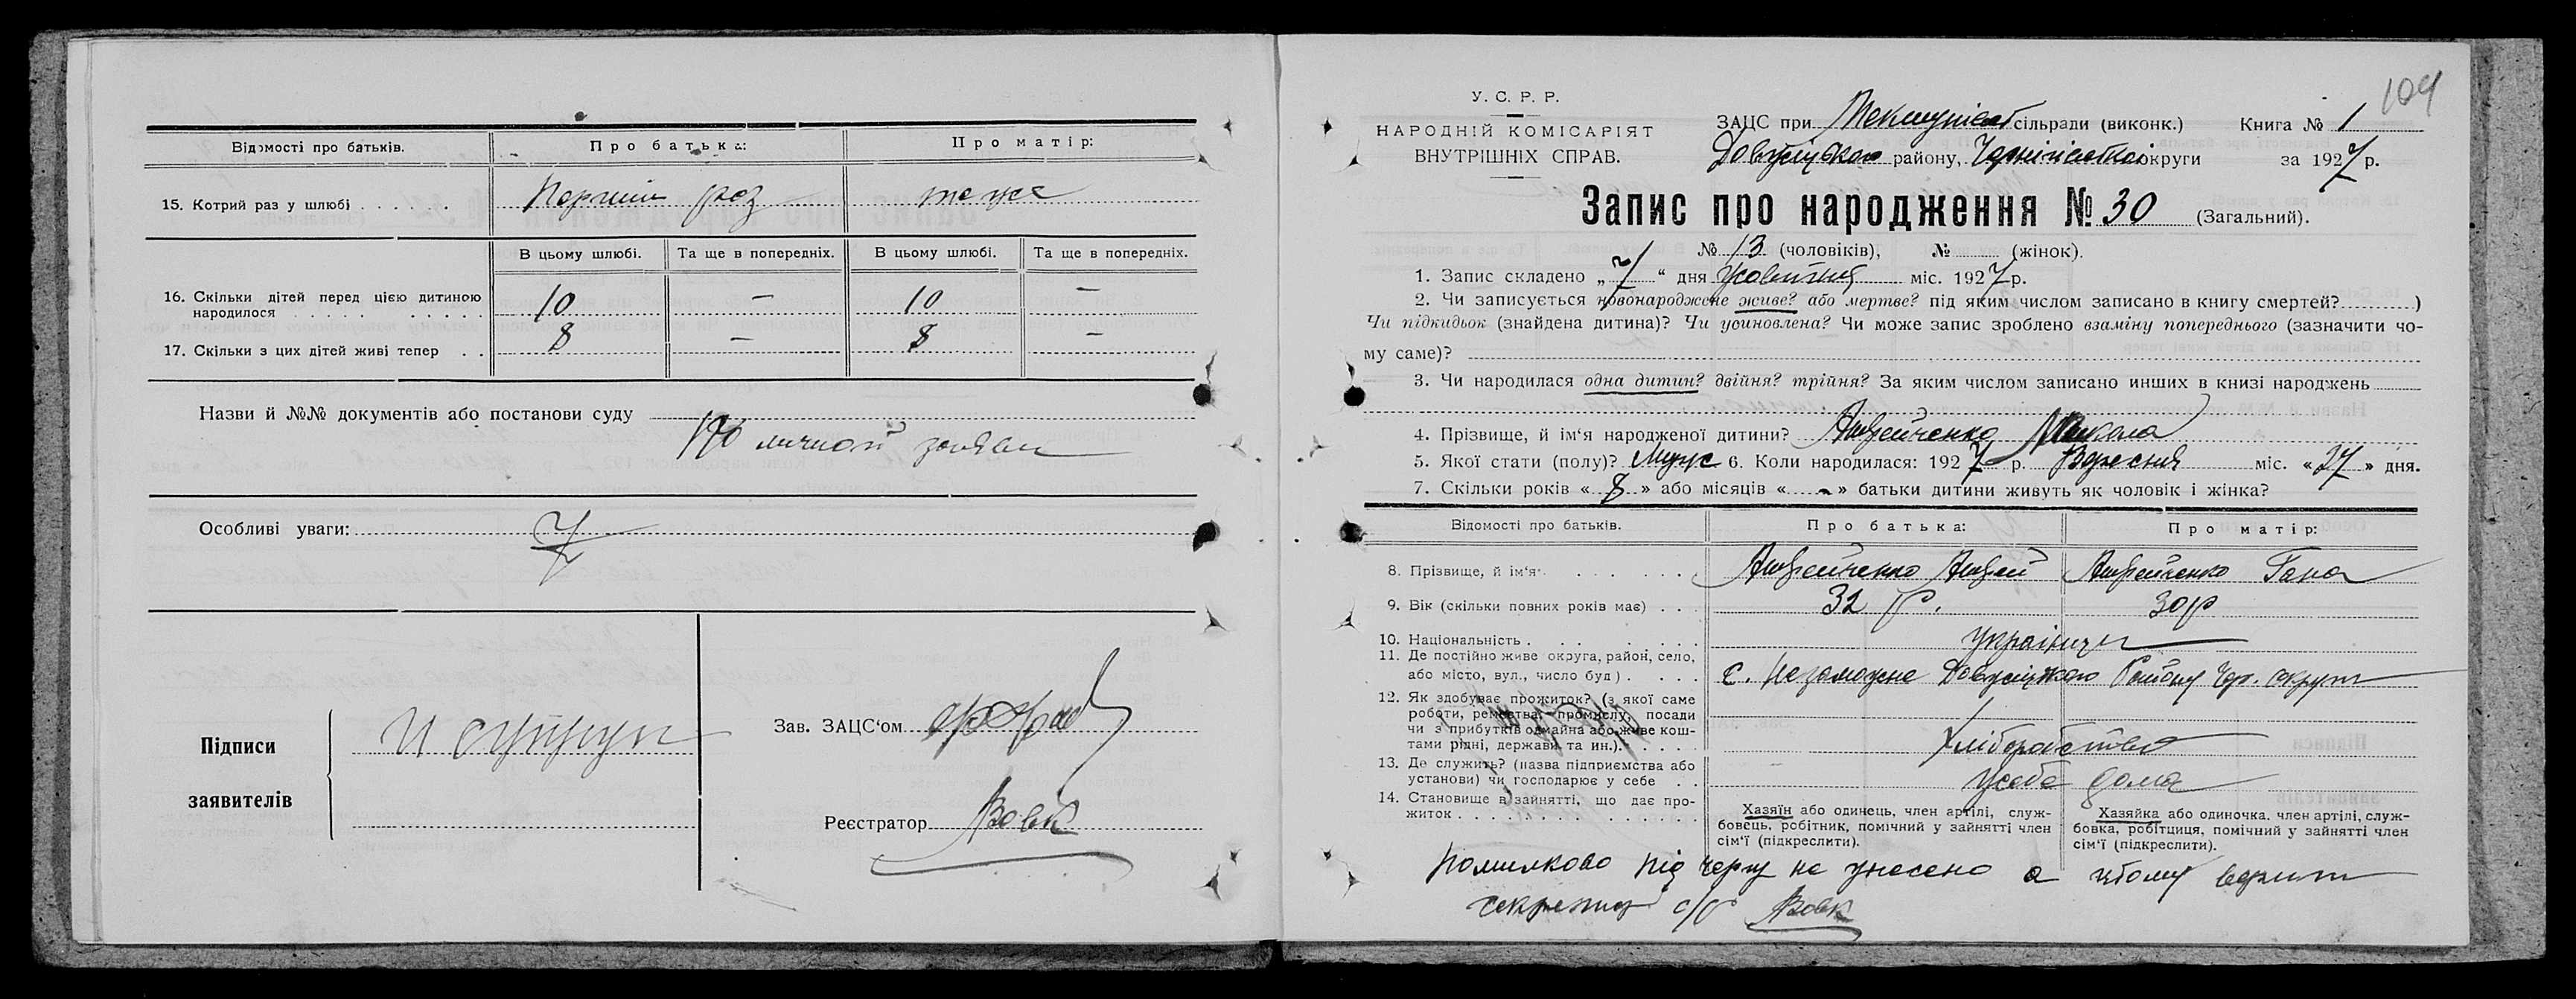 Відомості про батьків. Про батька: Про матір:
15. Котрий раз у шлюбі Перший раз теже
В цьому шлюбі. Та ще в попередніх. В цьому шлюбі. Та ще в попередніх.
16. Скільки дітей перед цією дитиною
народилося 10 — 10 —
17. Скільки з цих дітей живі тепер 8 — 8 —
Назви й №№ документів або постанови суду
По личной заяви
Особливі уваги:
Підписи
заявителів
Зав. ЗАЦС'ом
Реєстратор Вовк
104
У. С. Р. Р.
НАРОДНІЙ КОМІСАРІЯТ
ВНУТРІШНІХ СПРАВ.
ЗАЦС при сільради (виконк.) Книга № 1
району, округи за 1927 р.
Запис про народження № 30 (Загальний).
№ 13 (чоловіків), № (жінок).
1. Запис складено „7“ дня жовтня міс. 1927 р.
2. Чи записується новонароджене живе? або мертве? під яким числом записано в книгу смертей? )
Чи підкидьок (знайдена дитина)? Чи усиновлена? Чи може запис зроблено взаміну попереднього (зазначити чо-
му саме)?
3. Чи народилася одна дитин? двійня? трійня? За яким числом записано инших в книзі народжень
4. Прізвище, й ім'я народженої дитини? Андрейченко Микола
5. Якої стати (полу)? Муж 6. Коли народилася: 1927 р. Вересня міс. «27» дня.
7. Скільки років «8» або місяців «-» батьки дитини живуть як чоловік і жінка?
Відомості про батьків. Про батька: Про матір:
8. Прізвище, й ім'я Андрейченко Андрей Андрейченко Гана
9. Вік (скільки повних років має) 32 р. 30 р
10. Національність українци
11. Де постійно живе округа, район, село,
або місто, вул., число буд) с. Незаможне Району Чер. округи
12. Як здобуває прожиток? (з якої саме
роботи, ремества, промислу, посади
чи з прибутків одмайна або живе кош-
тами рідні, держави та ин.). Хліборобство
13. Де служить? (назва підприємства або
установи) чи господарює у себе усебе дома
14. Становище в зайнятті, що дає про-
житок
Хазяїн або одинець, член артілі, служ-
бовець, робітник, помічний у зайнятті член
сім'ї (підкреслити).
Хазяйка або одиночка. член артілі, служ-
бовка, робітниця, помічний у зайнятті член
сім'ї (підкреслити).
Помилково під чергу не унесено а
секретар с/р Вовк